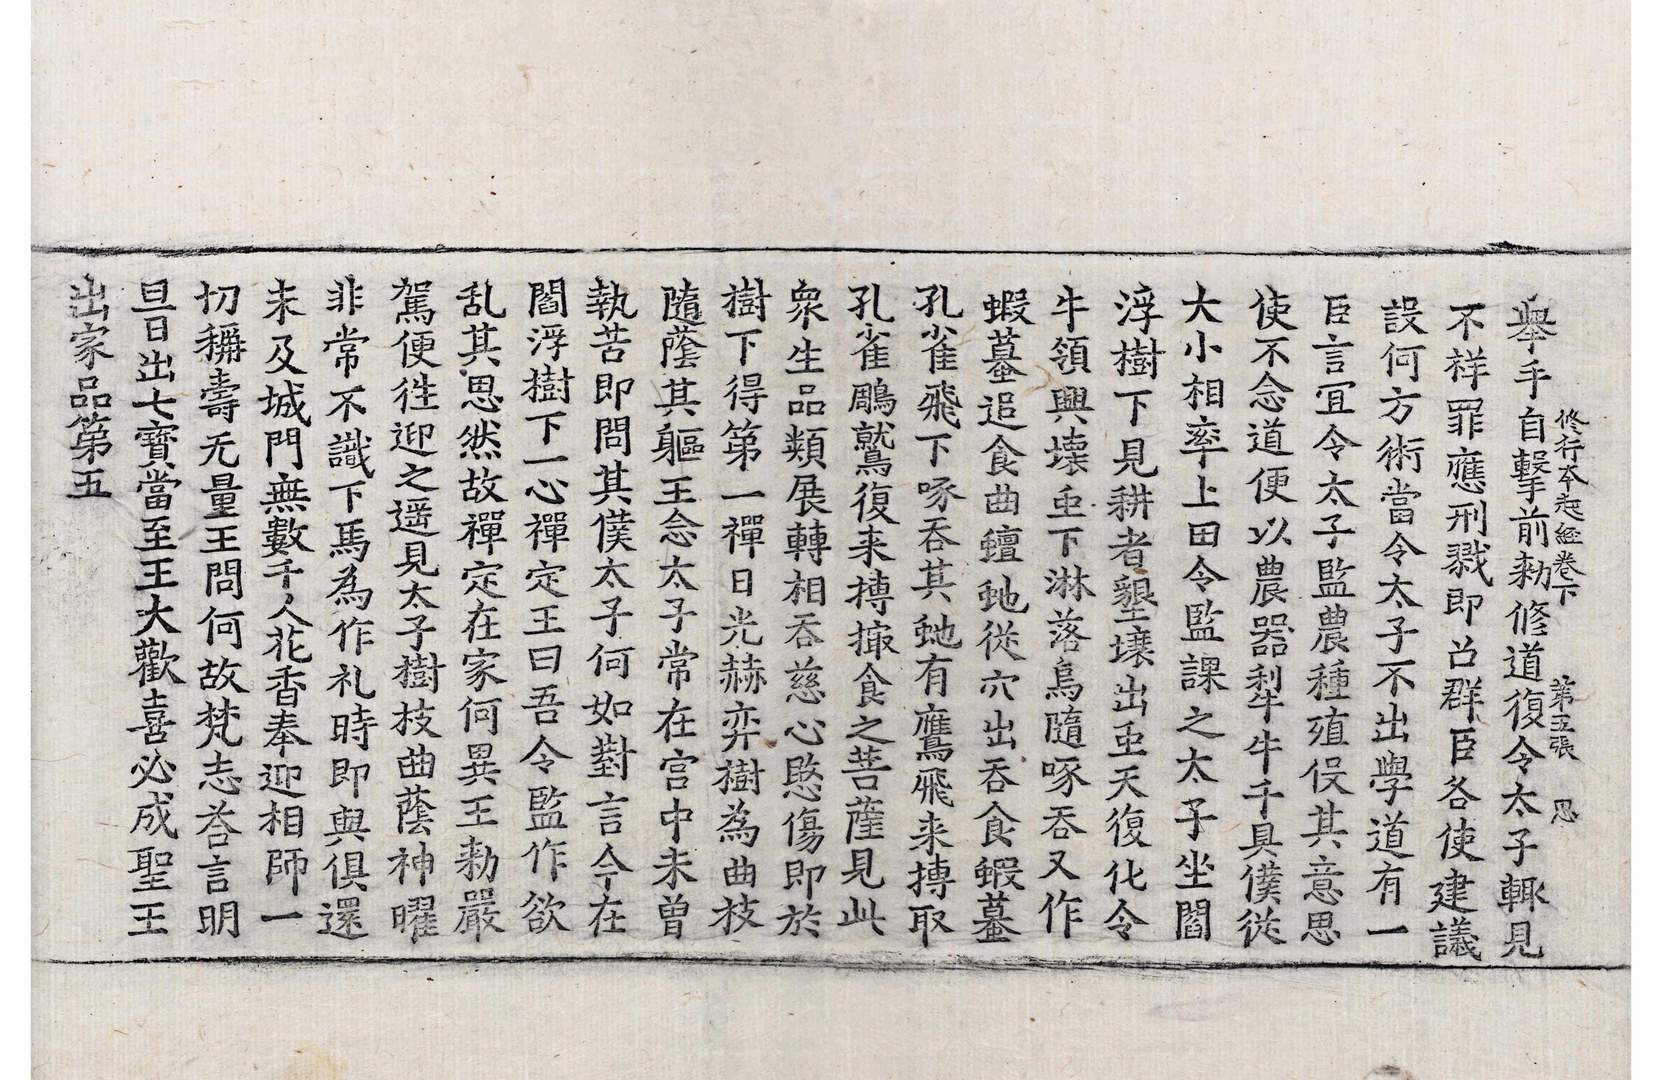 修行本起經卷下　第五張　思
舉手自擊前勑修道復令太子輙見
不祥罪應刑戮即召群臣各使建議
設何方術當令太子不出學道有一
臣言冝令太子監農種殖役其意思
使不念道便以農器犁牛千具僕從
大小相率上田令監課之太子坐閻
浮樹下見耕者墾壤出䖝天復化令
牛領興壞䖝下淋落烏隨啄吞又作
蝦蟇追食曲蟺虵從穴出吞食蝦蟇
孔雀飛下啄吞其虵有鷹飛来搏取
孔雀鵰鷲復来搏撮食之菩薩見此
衆生品類展轉相吞慈心愍傷即於
樹下得第一禪日光赫弈樹為曲枝
隨蔭其軀王念太子常在宫中未曽
執苦即問其僕太子何如對言今在
閻浮樹下一心禪定王曰吾令監作欲
乱其思然故禪定在家何異王勑嚴
駕便徃迎之遥見太子樹枝曲蔭神曜
非常不識下馬為作礼時即與俱還
未及城門無數千人花香奉迎相師一
切稱壽无量王問何故梵志荅言明
旦日出七寶當至王大歡喜必成聖王
出家品第五